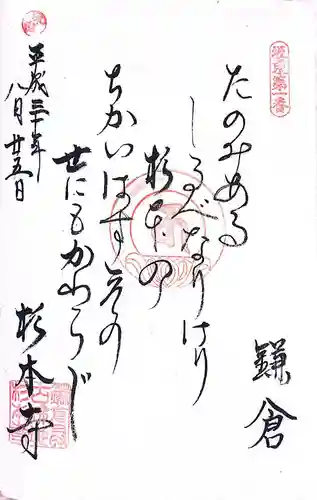 坂東第一番
たのみある
しるべなりけり
杉本の
ちかいはすゑの
世にもかわらじ
鎌倉
杉本寺
平成三十年
八月廿五日